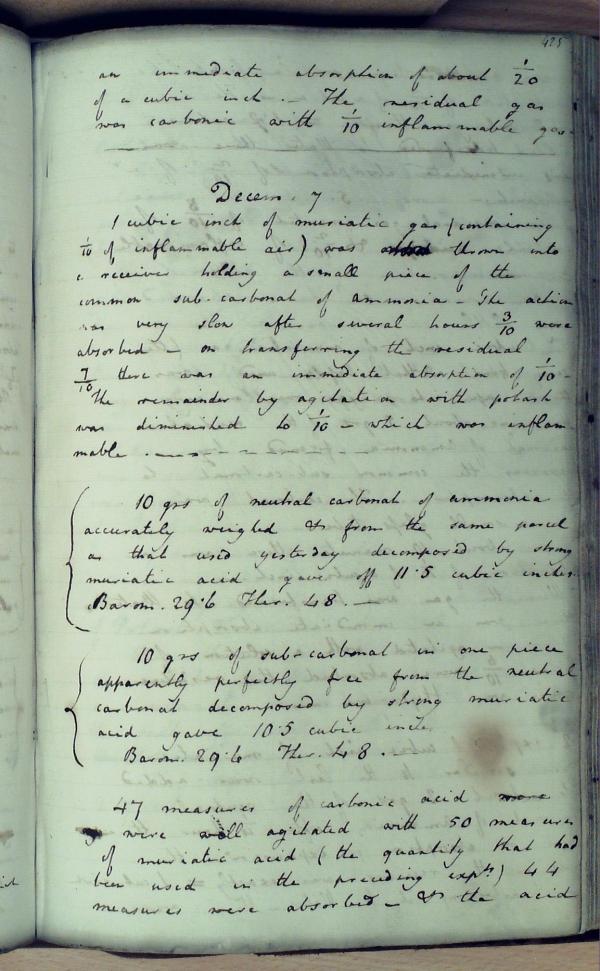 425
an immediate absorption of about 1/20
of a cubic inch. – The residual gas
was carbonic with 1/10 inflammable gas
Decem. 7
1 cubic inch of muriatic gas (containing
1/10 of inflammable air) was thrown into
a receiver holding a small piece of the
common sub-carbonat of ammonia – The action
was very slow after several hours 3/10 were
absorbed – on transferring the residual
7/10 there was an immediate absorption of 1/10 –
The remainder by agitation with potash
was diminished to 1/10 – which was inflam-
mable . – – – – – –
10 grs of neutral carbonat of ammonia
accurately weighed & from the same parcel
as that used yesterday decomposed by strong
muriatic acid gave off 11·5 cubic inches.
Barom. 29·6 Ther. 48. –
10 grs of sub-carbonat in one piece
apparently perfectly free from the neutral
carbonat decomposed by strong muriatic
acid gave 10·5 cubic inch.
Barom. 29·6 Ther. 48. –
47 measures of carbonic acid
were well agitated with 50 measures
of muriatic acid (the quantity that had
been used in the preceding expts) 44
measures were absorbed – & the acid